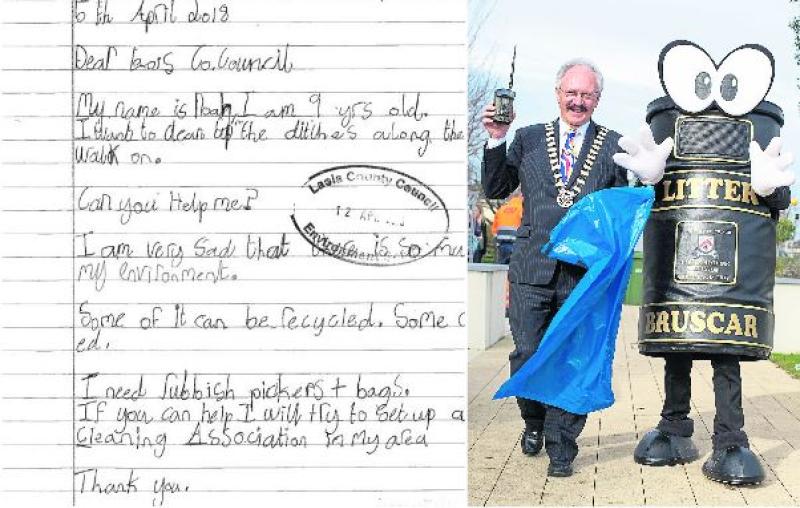 6th April 2018
Dear Laois Co. Council
My name is Noah, I am 9 yrs old.
I want to clean up the ditches along the
walk on.
Can you Help me?
I am very sad that there is so mu
my environment.
Some of it can be recycled. Some c
ed.
I need rubbish pickers + bags.
If you can help I will try to set up a
Cleaning Association in my area
Thank you.
Laois County Council
12 APR
Environment
LITTER
BRUSCAR